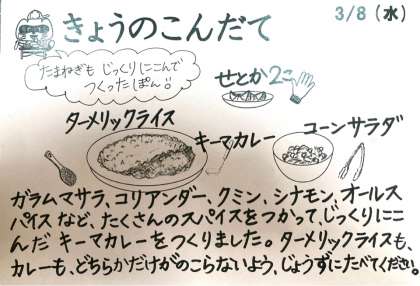 きょうのこんだて
3/8(水)
たまねぎも じっくりにこんで
つくったぽん!!
せとか2こ
ターメリックライス
キーマカレー
コーンサラダ
ガラムマサラ、コリアンダー、クミン、シナモン、オールス
パイスなど、たくさんのスパイスをつかって、じっくりにこ
んだ キーマカレーをつくりました。ターメリックライスも、
カレーも、どちらかだけがのこらないよう、じょうずにたべてください。